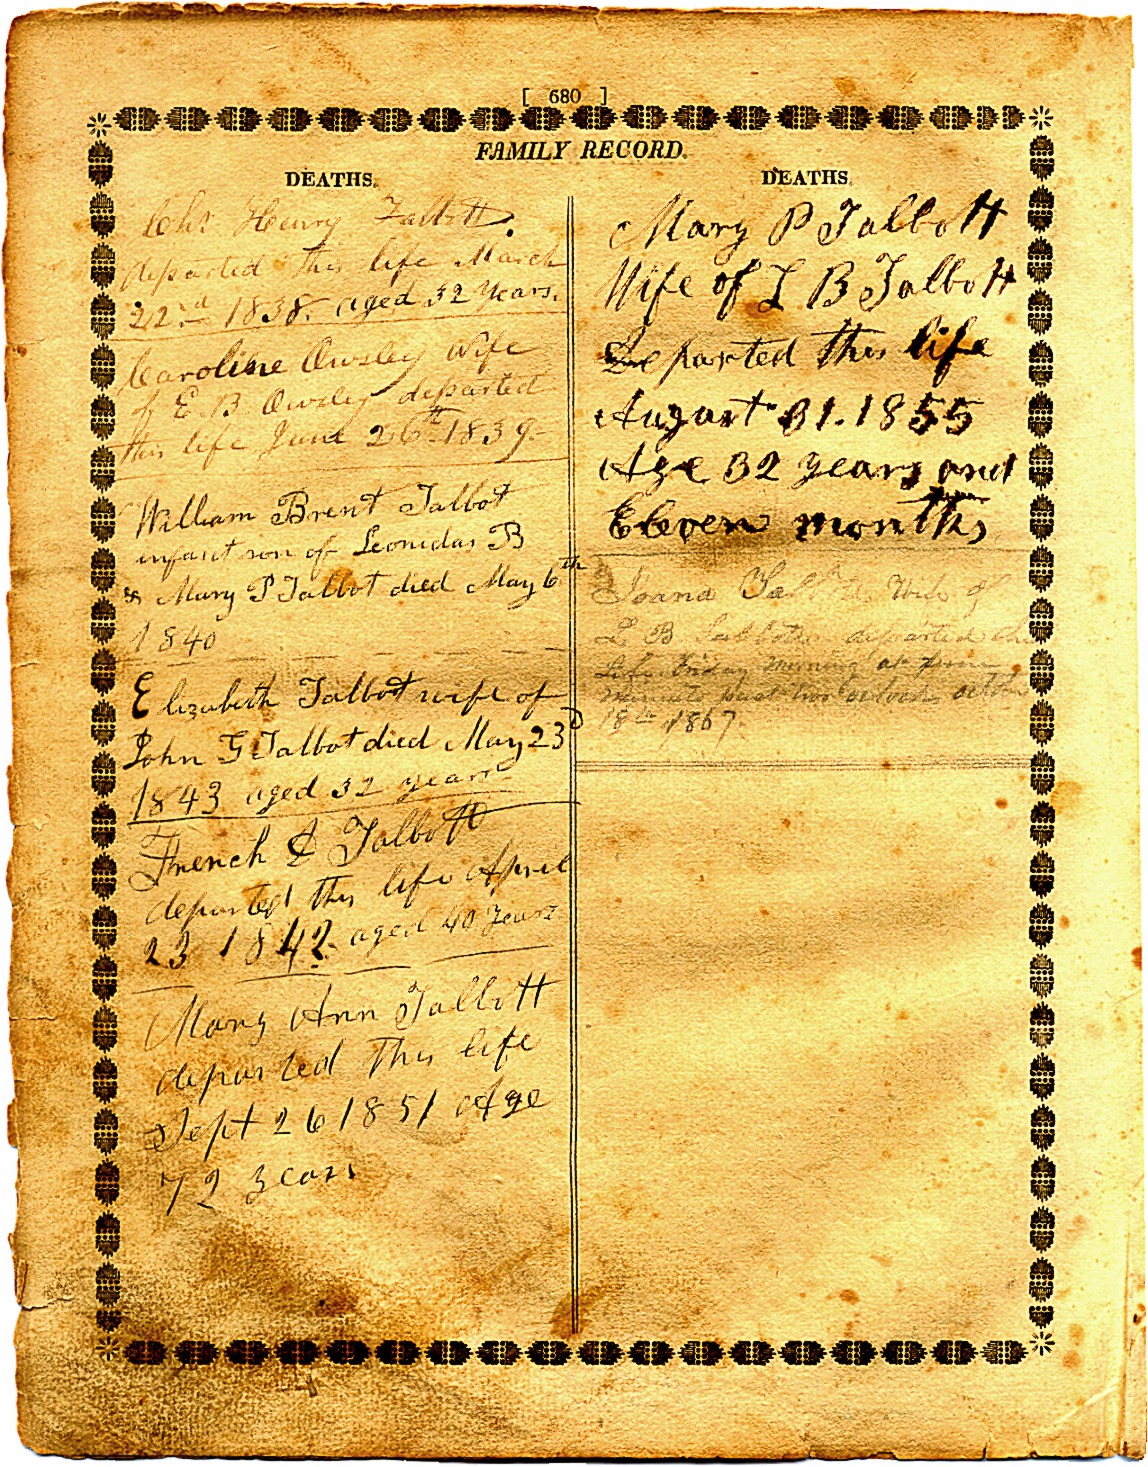 [ 680 ]
FAMILY RECORD.
DEATHS.
Chs Henry Talbott.
departed this life March
22nd 1838. aged 32 Years.
Caroline Owsley Wife
of E. B. Owsley departed
this life June 26th 1839-
William Brent Talbot
infant son of Leonidas B
& Mary P Talbot died May 6th
1840
Elizabeth Talbot wife of
John G Talbot died May 23D
1843 aged 32 years
French Talbott
departed this life April
23 1842. aged 40 Years
Mary Ann Talbott
departed This life
Sept 26 1851 Age
72 years
DEATHS.
Mary P Talbott
Wife of L B Talbott
Departed this life
August 31. 1855
Age 32 years and
Eleven months
Joana Wife of
L B departed
Life Friday morning at
minutes past two
18th 1867.